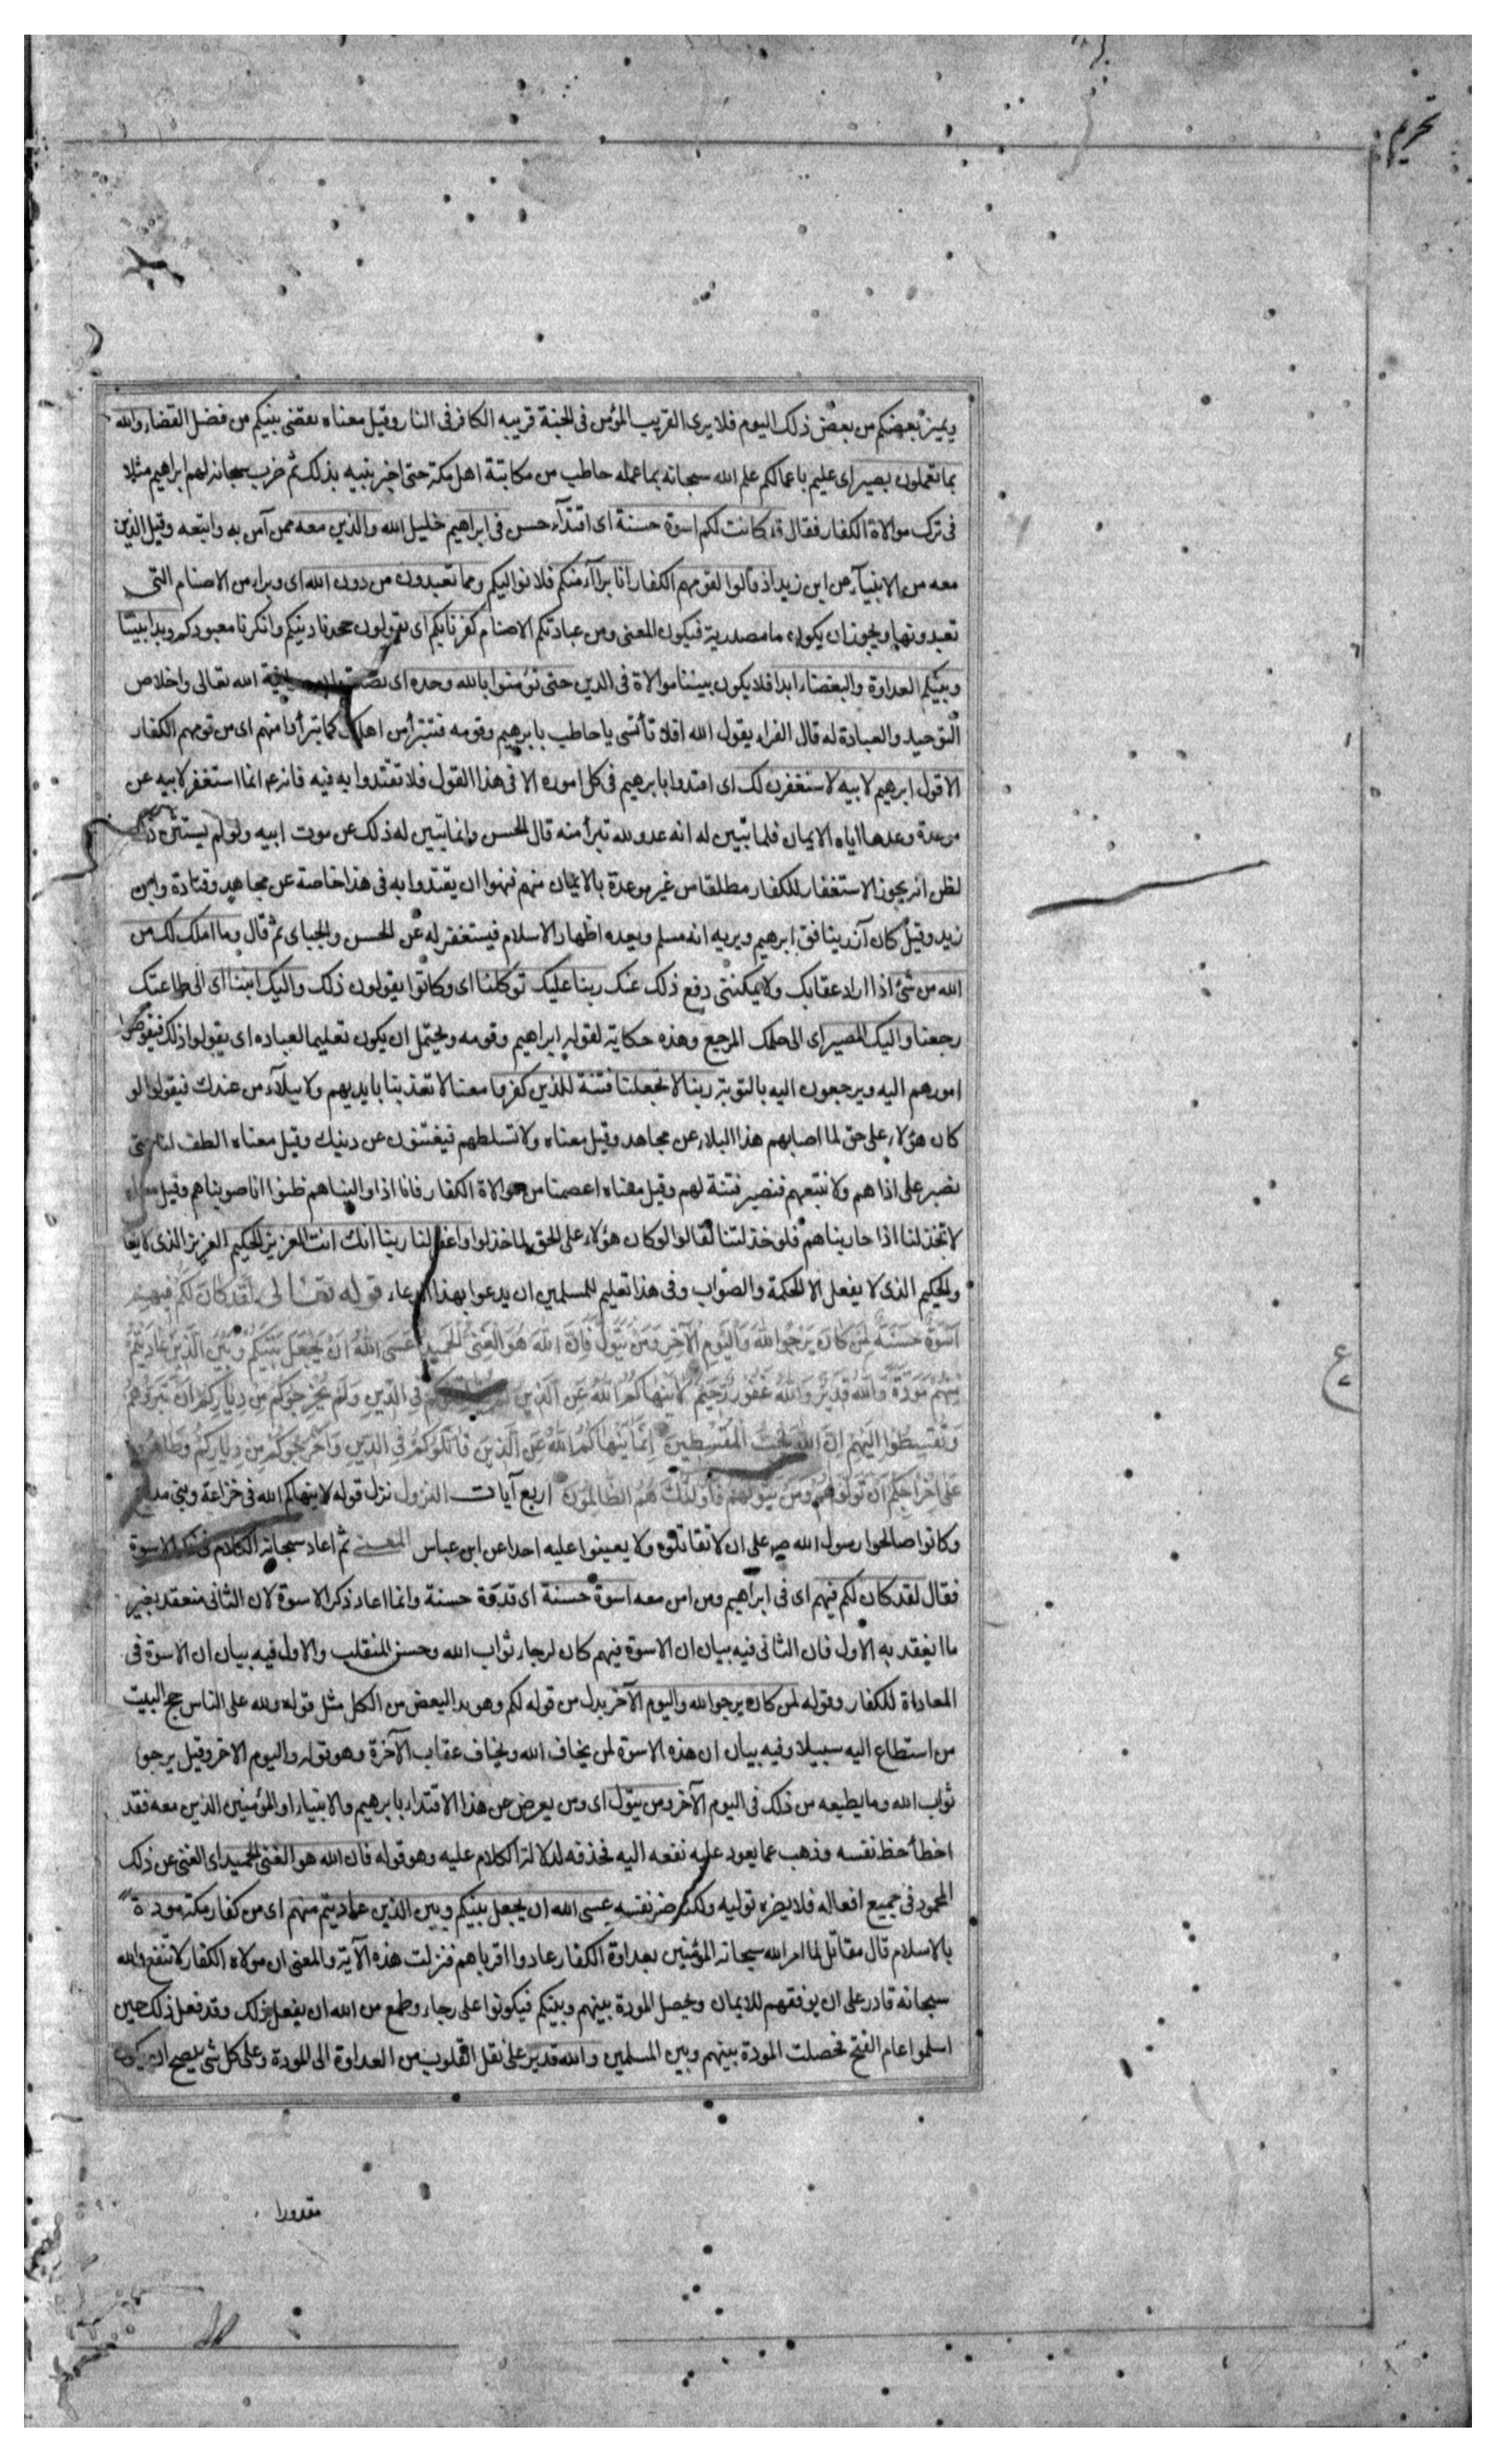 تحريم
ويميز بعضكم من بعض ذلك اليوم فلا يرى القريب المؤمن فى الجنة قريبه الكافر فى النار وقيل معناه يقضى بينكم من فصل القضاء والله
بما تعملون بصير اى عليم باعمالكم علم الله سبحانه بما عمله حاطب من مكاتبة اهل مكة حتى اخبر نبيه بذلك ثم ضرب سبحانه لهم ابراهيم مثلا
فى ترك موالاة الكفار فقال قد كانت لكم اسوة حسنة اى اقتدآء حسن فى ابراهيم خليل الله والذين معه ممن آمن به واتبعه وقيل الذين
معه من الانبيآء عن ابن زيد اذ قالوا لقومهم الكفار انا برآء منكم فلا نواليكم ومما تعبدون من دون الله اى وبراء من الاصنام التى
تعبدونها ويجوز ان يكون ما مصدرية فيكون المعنى ومن عبادتكم الاصنام كفرنا بكم اى يقولون جحدنا دينكم وانكرنا معبودكم وبدا بيننا
وبينكم العداوة والبغضاء ابدا فلا يكون بيننا موالاة فى الدين حتى تؤمنوا بالله وحده اى الله تعالى واخلاص
التوحيد والعبادة له قال الفراء يقول الله افلا تأتسى يا حاطب بابرهيم وقومه فتتبرأ من اهلك كما تبرأوا منهم اى من قومهم الكفار
الا قول ابرهيم لابيه لاستغفرن لك اى اقتدوا بابرهيم فى كل اموره الا فى هذا القول فلا تقتدوا به فيه فانه ع انما استغفر لابيه عن
موعدة وعدها اياه الايمان فلما تبين له انه عدو لله تبرأ منه قال الحسن وانما تبين له ذلك عن موت ابيه ولو لم يستثن ذلك
لظن انه يجوز الاستغفار للكفار مطلقا من غير موعدة بالايمان منهم فنهوا ان يقتدوا به فى هذا خاصة عن مجاهد وقتادة وابن
زيد وقيل كان آزر ينافق ابرهيم ويريه انه مسلم ويعده اظهار الاسلام فيستغفر له عن الحسن والجباى ثم قال وما املك لك من
الله من شئ اذا اراد عقابك ولا يمكننى دفع ذلك عنك ربنا عليك توكلنا اى وكانوا يقولون ذلك واليك انبنا اى الى طاعتك
رجعنا واليك المصير اى الى حكمك المرجع وهذه حكاية لقول ابراهيم وقومه ويحتمل ان يكون تعليما لعباده اى يقولوا ذلك فيفوضوا
امورهم اليه ويرجعون اليه بالتوبة ربنا لا تجعلنا فتنة للذين كفروا معنا لا تعذبنا بايديهم ولا ببلآء من عندك فيقولوا لو
كان هؤلاء على حق لما اصابهم هذا البلاء عن مجاهد وقيل معناه ولا تسلطهم فيفتنون عن دينك وقيل معناه الطف لنا حتى
نصبر على اذاهم ولا نتبعهم فنصير فتنة لهم وقيل معناه اعصمنا من موالاة الكفار فانا اذا واليناهم ظنوا انا صوبناهم وقيل معناه
لا تخذلنا اذا حاربناهم فلو خذلتنا لقالوا لو كان هؤلاء على الحق لما خذلوا واغفر لنا ربنا انك انت العزيز الحكيم العزيز الذى لا يغا
والحكيم الذى لا يفعل الا الحكمة والصواب وفى هذا تعليم للمسلمين ان يدعوا بهذا الدعاء قوله تعالى لَقَدْ كَانَ لَكُمْ فِيهِمْ
اُسْوَةٌ حَسَنَةٌ لِمَنْ كَانَ يَرْجُوا اللّٰهَ وَالْيَوْمَ الْآخِرَ وَمَنْ يَتَوَلَّ فَاِنَّ اللّٰهَ هُوَ الْغَنِىُّ الْحَمِيدُ عَسَى اللّٰهُ اَنْ يَجْعَلَ بَيْنَكُمْ وَبَيْنَ الَّذِينَ عَادَيْتُمْ
مِنْهُمْ مَوَدَّةً وَاللّٰهُ قَدِيرٌ وَاللّٰهُ غَفُورٌ رَحِيمٌ لَا يَنْهَاكُمُ اللّٰهُ عَنِ الَّذِينَ فِى الدِّينِ وَلَمْ يُخْرِجُوكُمْ مِنْ دِيَارِكُمْ اَنْ تَبَرُّوهُمْ
وَتُقْسِطُوا اِلَيْهِمْ اِنَّ اللّٰهَ يُحِبُّ الْمُقْسِطِينَ اِنَّمَا يَنْهَاكُمُ اللّٰهُ عَنِ الَّذِينَ قَاتَلُوكُمْ فِى الدِّينِ وَاَخْرَجُوكُمْ مِنْ دِيَارِكُمْ وَظَاهَرُوا
عَلَى اِخْرَاجِكُمْ اَنْ تَوَلَّوْهُمْ وَمَنْ يَتَوَلَّهُمْ فَاُولٰئِكَ هُمُ الظَّالِمُونَ اربع آيات النزول نزل قوله لا ينهاكم الله فى خزاعة وبنى مدلج
وكانوا صالحوا رسول الله ص على ان لا تقاتلوه ولا يعينوا عليه احدا عن ابن عباس المعنى ثم اعاد سبحانه الكلام فى ذكر الاسوة
فقال لقد كان لكم فيهم اى فى ابراهيم ومن امن معه اسوة حسنة اى قدوة حسنة وانما اعاد ذكر الاسوة لان الثانى منعقد بغير
ما انعقد به الاول فان الثانى فيه بيان ان الاسوة فيهم كان لرجاء ثواب الله وحسن المنقلب والاول فيه بيان ان الاسوة فى
المعاداة للكفار وقوله لمن كان يرجوا الله واليوم الآخر بدل من قوله لكم وهو بدل البعض من الكل مثل قوله ولله على الناس حج البيت
من استطاع اليه سبيلا وفيه بيان ان هذه الاسوة لمن يخاف الله ويخاف عقاب الآخرة وهو قوله واليوم الاخر وقيل يرجو
ثواب الله وما يعطيه من ذلك فى اليوم الآخر ومن يتول اى ومن يعرض عن هذا الاقتداء بابرهيم والانبياء او المؤمنين الذين معه فقد
اخطأ حظ نفسه وذهب عما يعود عليه نفعه اليه فحذفه لدلالة الكلام عليه وهو قوله فان الله هو الغنى الحميد اى الغنى عن ذلك
المحمود فى جميع افعاله فلا يضره توليه ولكنه ضر نفسه عسى الله ان يجعل بينكم وبين الذين عاديتم منهم اى من كفار مكة مودة
بالاسلام قال مقاتل لما امر الله سبحانه المؤمنين بعداوة الكفار عادوا اقرباهم فنزلت هذه الآية والمعنى ان مولاه الكفار لا تنفع والله
سبحانه قادر على ان يوفقهم للايمان ويحصل المودة بينهم وبينكم فيكونوا على رجاء وطمع من الله ان يفعل ذلك وقد فعل ذلك حين
اسلموا عام الفتح فحصلت المودة بينهم وبين المسلمين والله قدير على نقل القلوب من العداوة الى المودة وعلى كل شى يصح ان يكون
مقدورا